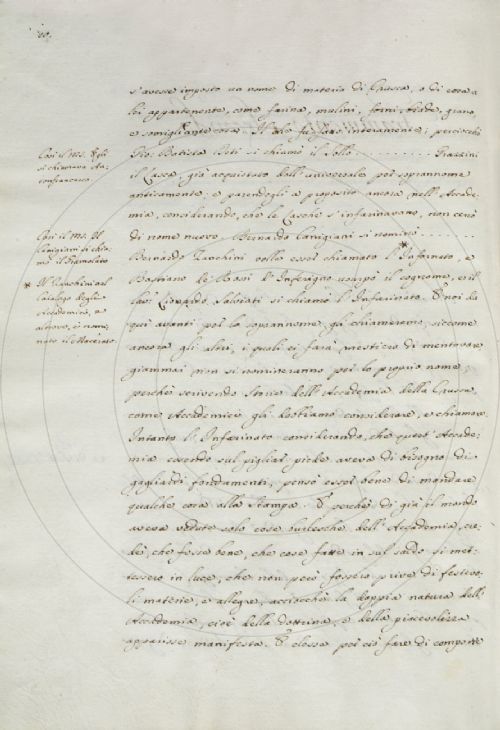 s'avesse imposto un nome di materia di Crusca, o di cosa a
lei appartenente, come farina, mulini, forni, biade, grano,
e somiglianti cose. Il che fu fatto interamente; perciocchè
Gio: Batista Deti si chiamò il Sollo .......... Grazzini
il Lasca, già acquistato dall'universale per soprannome
anticamente, e parendogli a proposito ancora nell'Accade-
mia, considerando, che le Lasche s'infarinavano, non cercò
di nome nuovo. Bernardo Canigiani si nominò ........
Bernardo Zanchini volle esser chiamato l'Infornato, e
Bastiano de Rossi l'Inferigno usurpò il cognome, e il
Cav: Lionardo Salviati si chiamò l'Infarinato. E noi da
quì avanti per lo soprannome gli chiameremo, siccome
ancora gli altri, i quali ci farà mestiero di mentovare
giammai non si nomineranno per lo proprio nome;
perchè scrivendo Storie dell'Accademia della Crusca,
come Accademici gli dobbiamo considerare, e chiamare.
Intanto l'Infarinato considerando, che quest'Accade-
mia essendo sul pigliar piede aveva di bisogno di
gagliardi fondamenti, pensò esser bene di mandare
qualche cosa alla Stampa. E perchè di già il mondo
aveva vedute solo cose burlesche dell'Accademia, cre-
dè, che fosse bene, che cose fatte in sul saldo si met-
tessero in luce, che non però fossero prive di festevo-
li materie, e allegre, acciocchè la doppia natura dell'
Accademia, cioè della dottrina, e della piacevolezza
apparisse manifesta. E elesse per ciò fare di comporre
Così il ms. Egli
si chiamava An-
tonfrancesco.
Così il ms. Il
Canigiani si chia-
mò il Gramolato
* Il Zanchini al
Catalogo degli
Accademici, e
altrove, è nomi-
nato il Macerato.